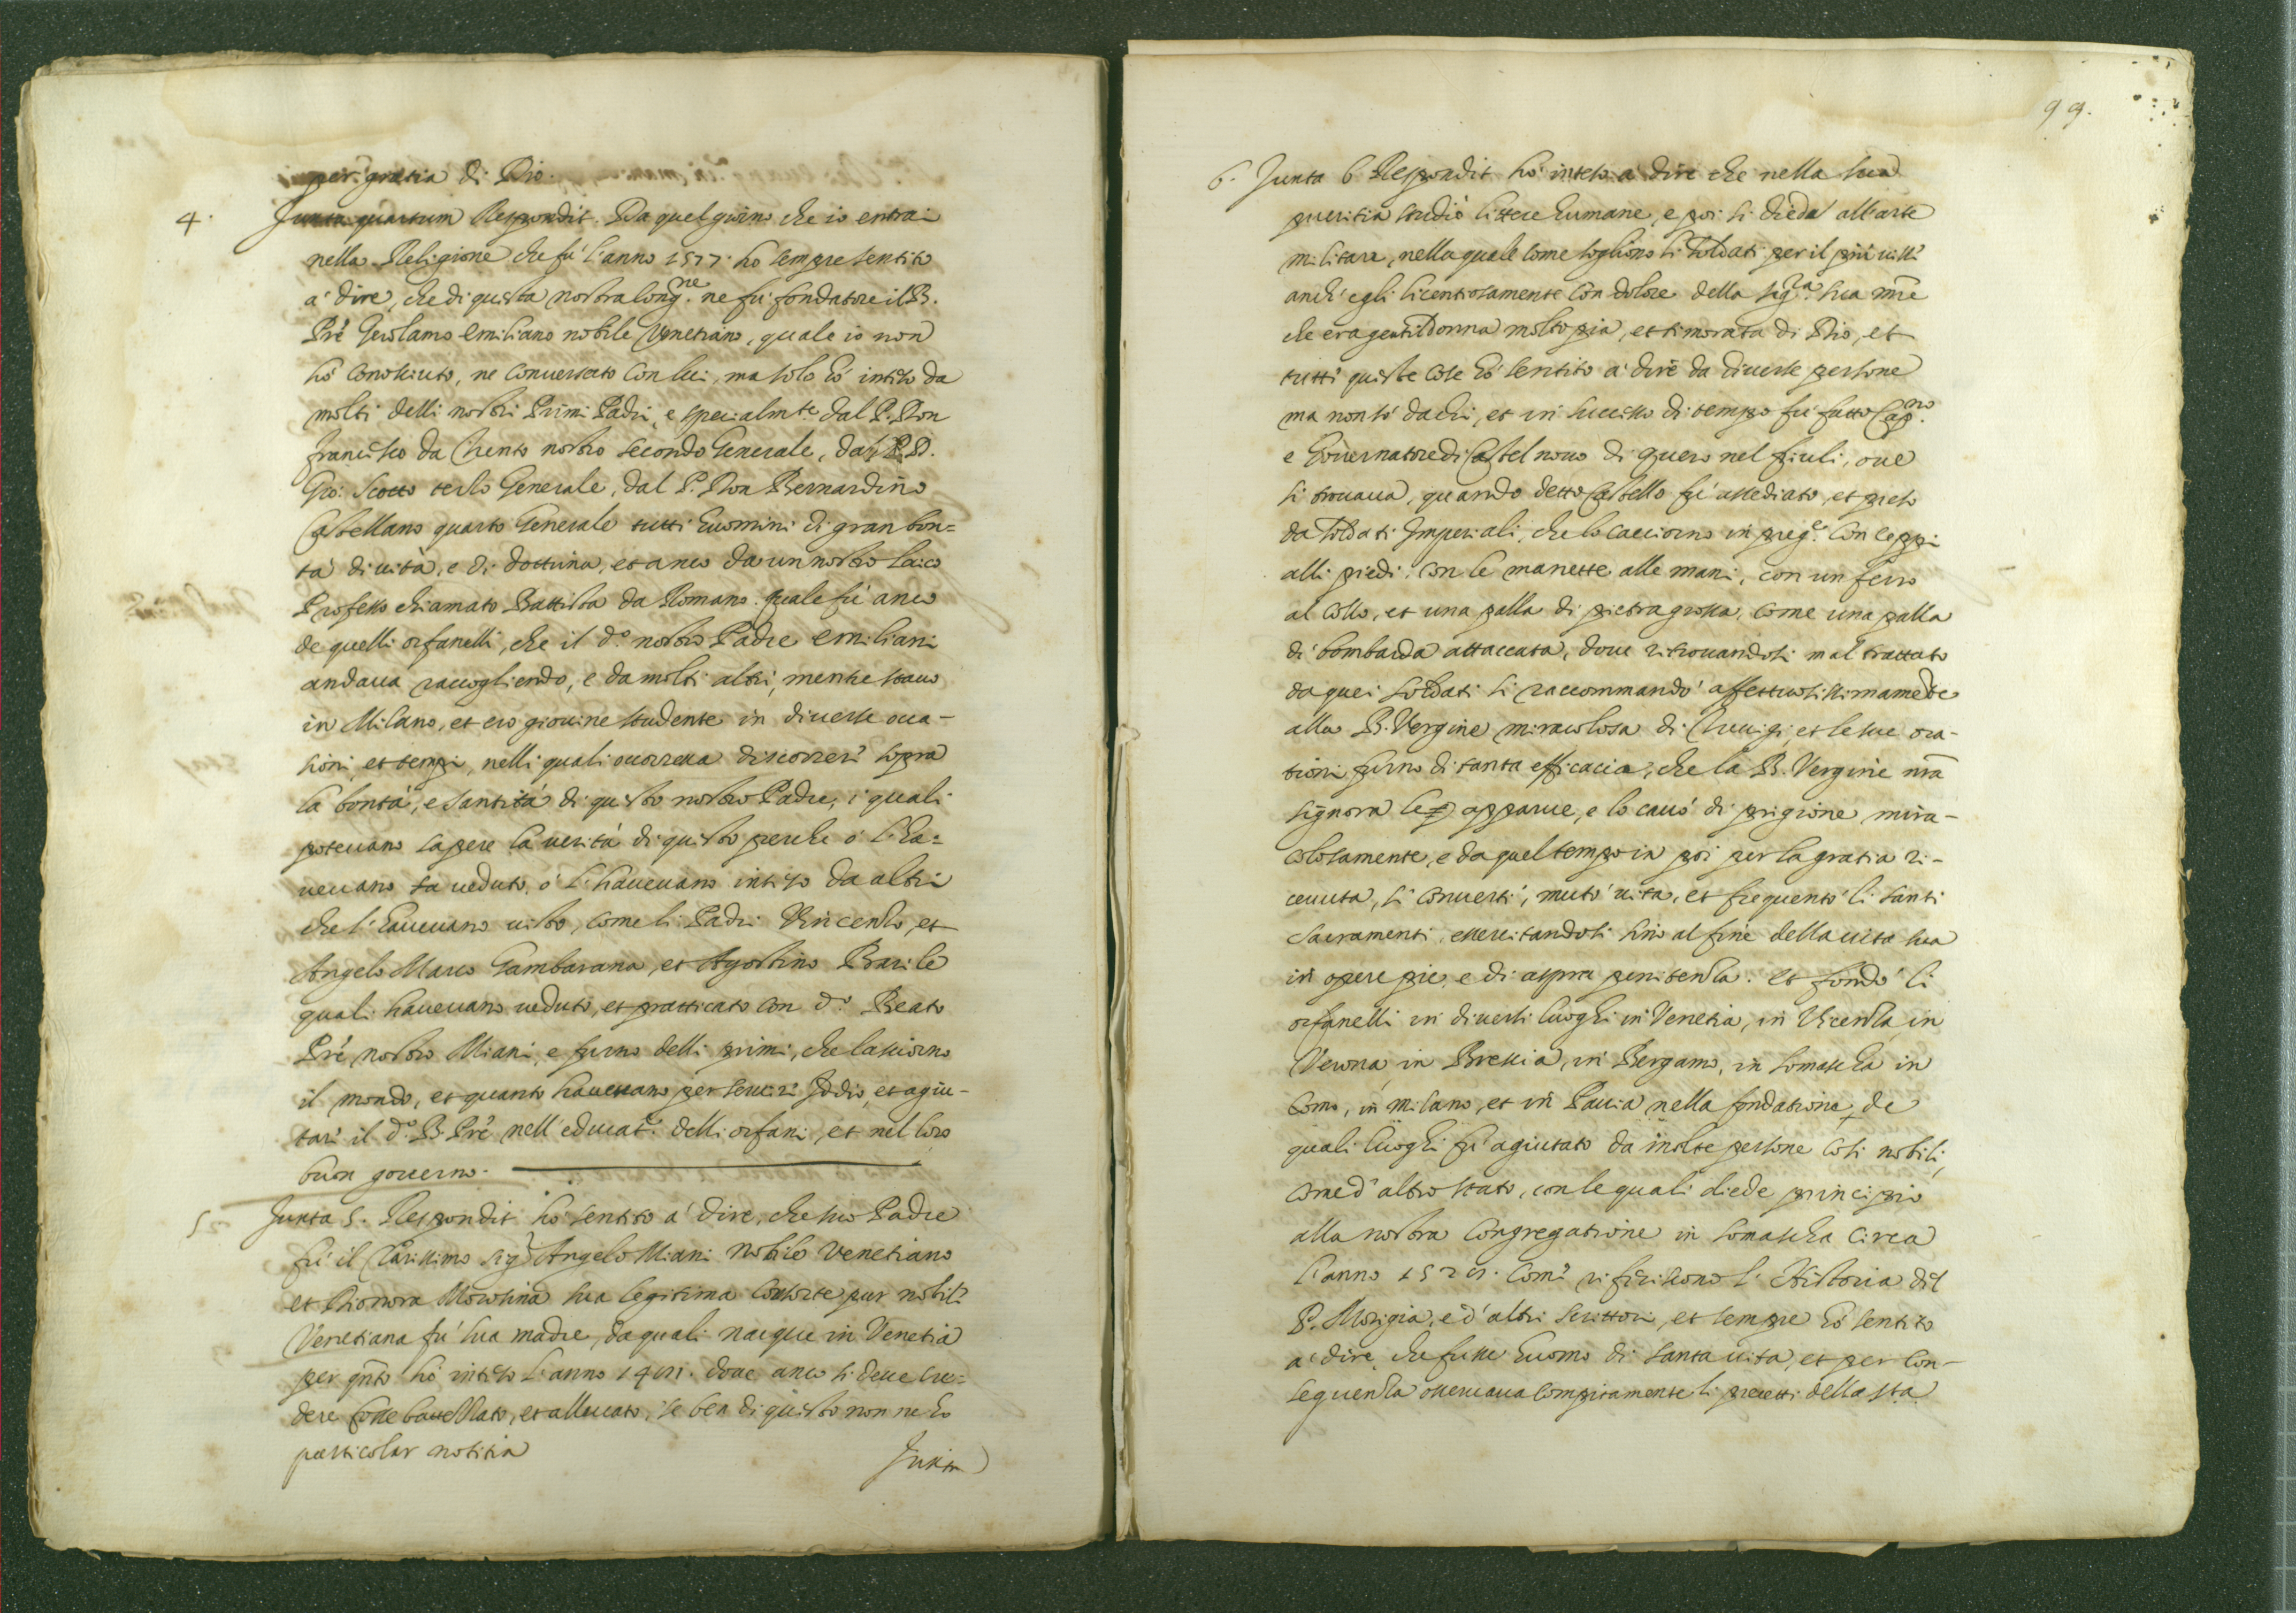 per gratia di Dio.
4. Juxta quartum Respondit. Da quel giorno che io entrai
nella Religione che fù l'anno 1577. ho sempre sentito
a' dire, che di questa nostra Cong.ne ne fù fondatore il B.
Prè Gerolamo Emiliano nobile Venetiano, quale io non
hò conosciuto, ne conversato con lui, ma solo hò inteso da
molti delli nostri Primi Padri, e specialmte dal P. Don
Francesco da Trento nostro secondo Generale, dal P. D.
Gio: Scotto terzo Generale, dal P. Don Bernardino
Castellano quarto Generale tutti huomini di gran bon=
tà di vita, e di dottrina, et anco da un nostro laico
Professo chiamato Battista da Romano quale fù anco
de quelli orfanelli, che il d.o nostro Padre Emiliani
andava raccogliendo, e da molti altri, mentre stavo
in Milano, et ero giovine studente in diverse occa-
sioni, et tempi, nelli quali occorreva discorrere sopra
la bontà, e santità di questo nostro Padre, i quali
potevano sapere la verità di questo perche ò l'ha=
vevano veduto, ò l'havevano inteso da altri
che l'havevano visto, come li Padri Vincenzo, et
Angelo Marco Gambarana, et Agostino Barile
quali havevano veduto, et pratticato con d.o Beato
Prè nostro Miani, e furno delli primi, che lasciorno
il mondo, et quanto havevano per servire Iddio, et agiu-
tare il d.o B. Prè nell'educat.e delli orfani, et nel loro
buon governo.
5. Juxta 5. Respondit hò sentito a' dire, che suo Padre
fù il Clarissimo Sig.r Angelo Miani Nobile Venetiano
et Dionora Morosina sua legitima Consorte pur nobile
Venetiana fù sua madre, da quali nacque in Venetia
per qnto hò inteso l'anno 1481. dove anco si deve cre=
dere fosse battezzato, et allevato, se ben di questo non ne hò
particolar notitia
Juxta
99.
6. Juxta 6 Respondit hò inteso a' dire che nella sua
pueritia studiò littere humane, e poi si diede all'arte
militare, nella quale come sogliono li soldati per il più visse
anch'egli licentiosamente con dolore della Sig.a sua mre
che era gentildonna molto pia, et timorata di Dio, et
tutte queste cose hò sentito a' dire da diverse persone
ma non sò da chi, et in successo di tempo fù fatto Cap.no
e Governatore di Castel novo di Quero nel friuli, ove
si trovava, quando detto Castello fù assediato, et preso
da soldati Imperiali, che lo cacciorno in preg.e con ceppi
alli piedi, con le manette alle mani, con un ferro
al collo, et una palla di pietra grossa, come una palla
di bombarda attaccata, dove ritrovandosi mal trattato
da quei soldati si raccommandò affettuosissimamente
alla B. Vergine miracolosa di Trevigi, et le sue ora-
tioni furno di tanta efficacia, che la B. Vergine nra
signora le apparve, e lo cavò di prigione mira-
colosamente, e da quel tempo in poi per la gratia ri-
cevuta, si convertì, mutò vita, et frequentò li santi
Sacramenti, essercitandosi sino al fine della vita sua
in opere pie, e di aspra penitenza. et fondò li
orfanelli in diversi luoghi in Venetia, in Vicenza, in
Verona, in Brescia, in Bergamo, in Somascha in
Como, in Milano, et in Pavia nella fondatione de
quali luoghi fù agiutato da molte persone così nobili,
come d'altro stato, con le quali diede principio
alla nostra Congregatione in Somascha circa
l'anno 1528. come riferiscono l'Historia del
P. Morigia, e d'altri scrittori, et sempre hò sentito
a' dire, che fusse huomo di santa vita, et per con-
sequenza osservava compitamente li precetti della sta